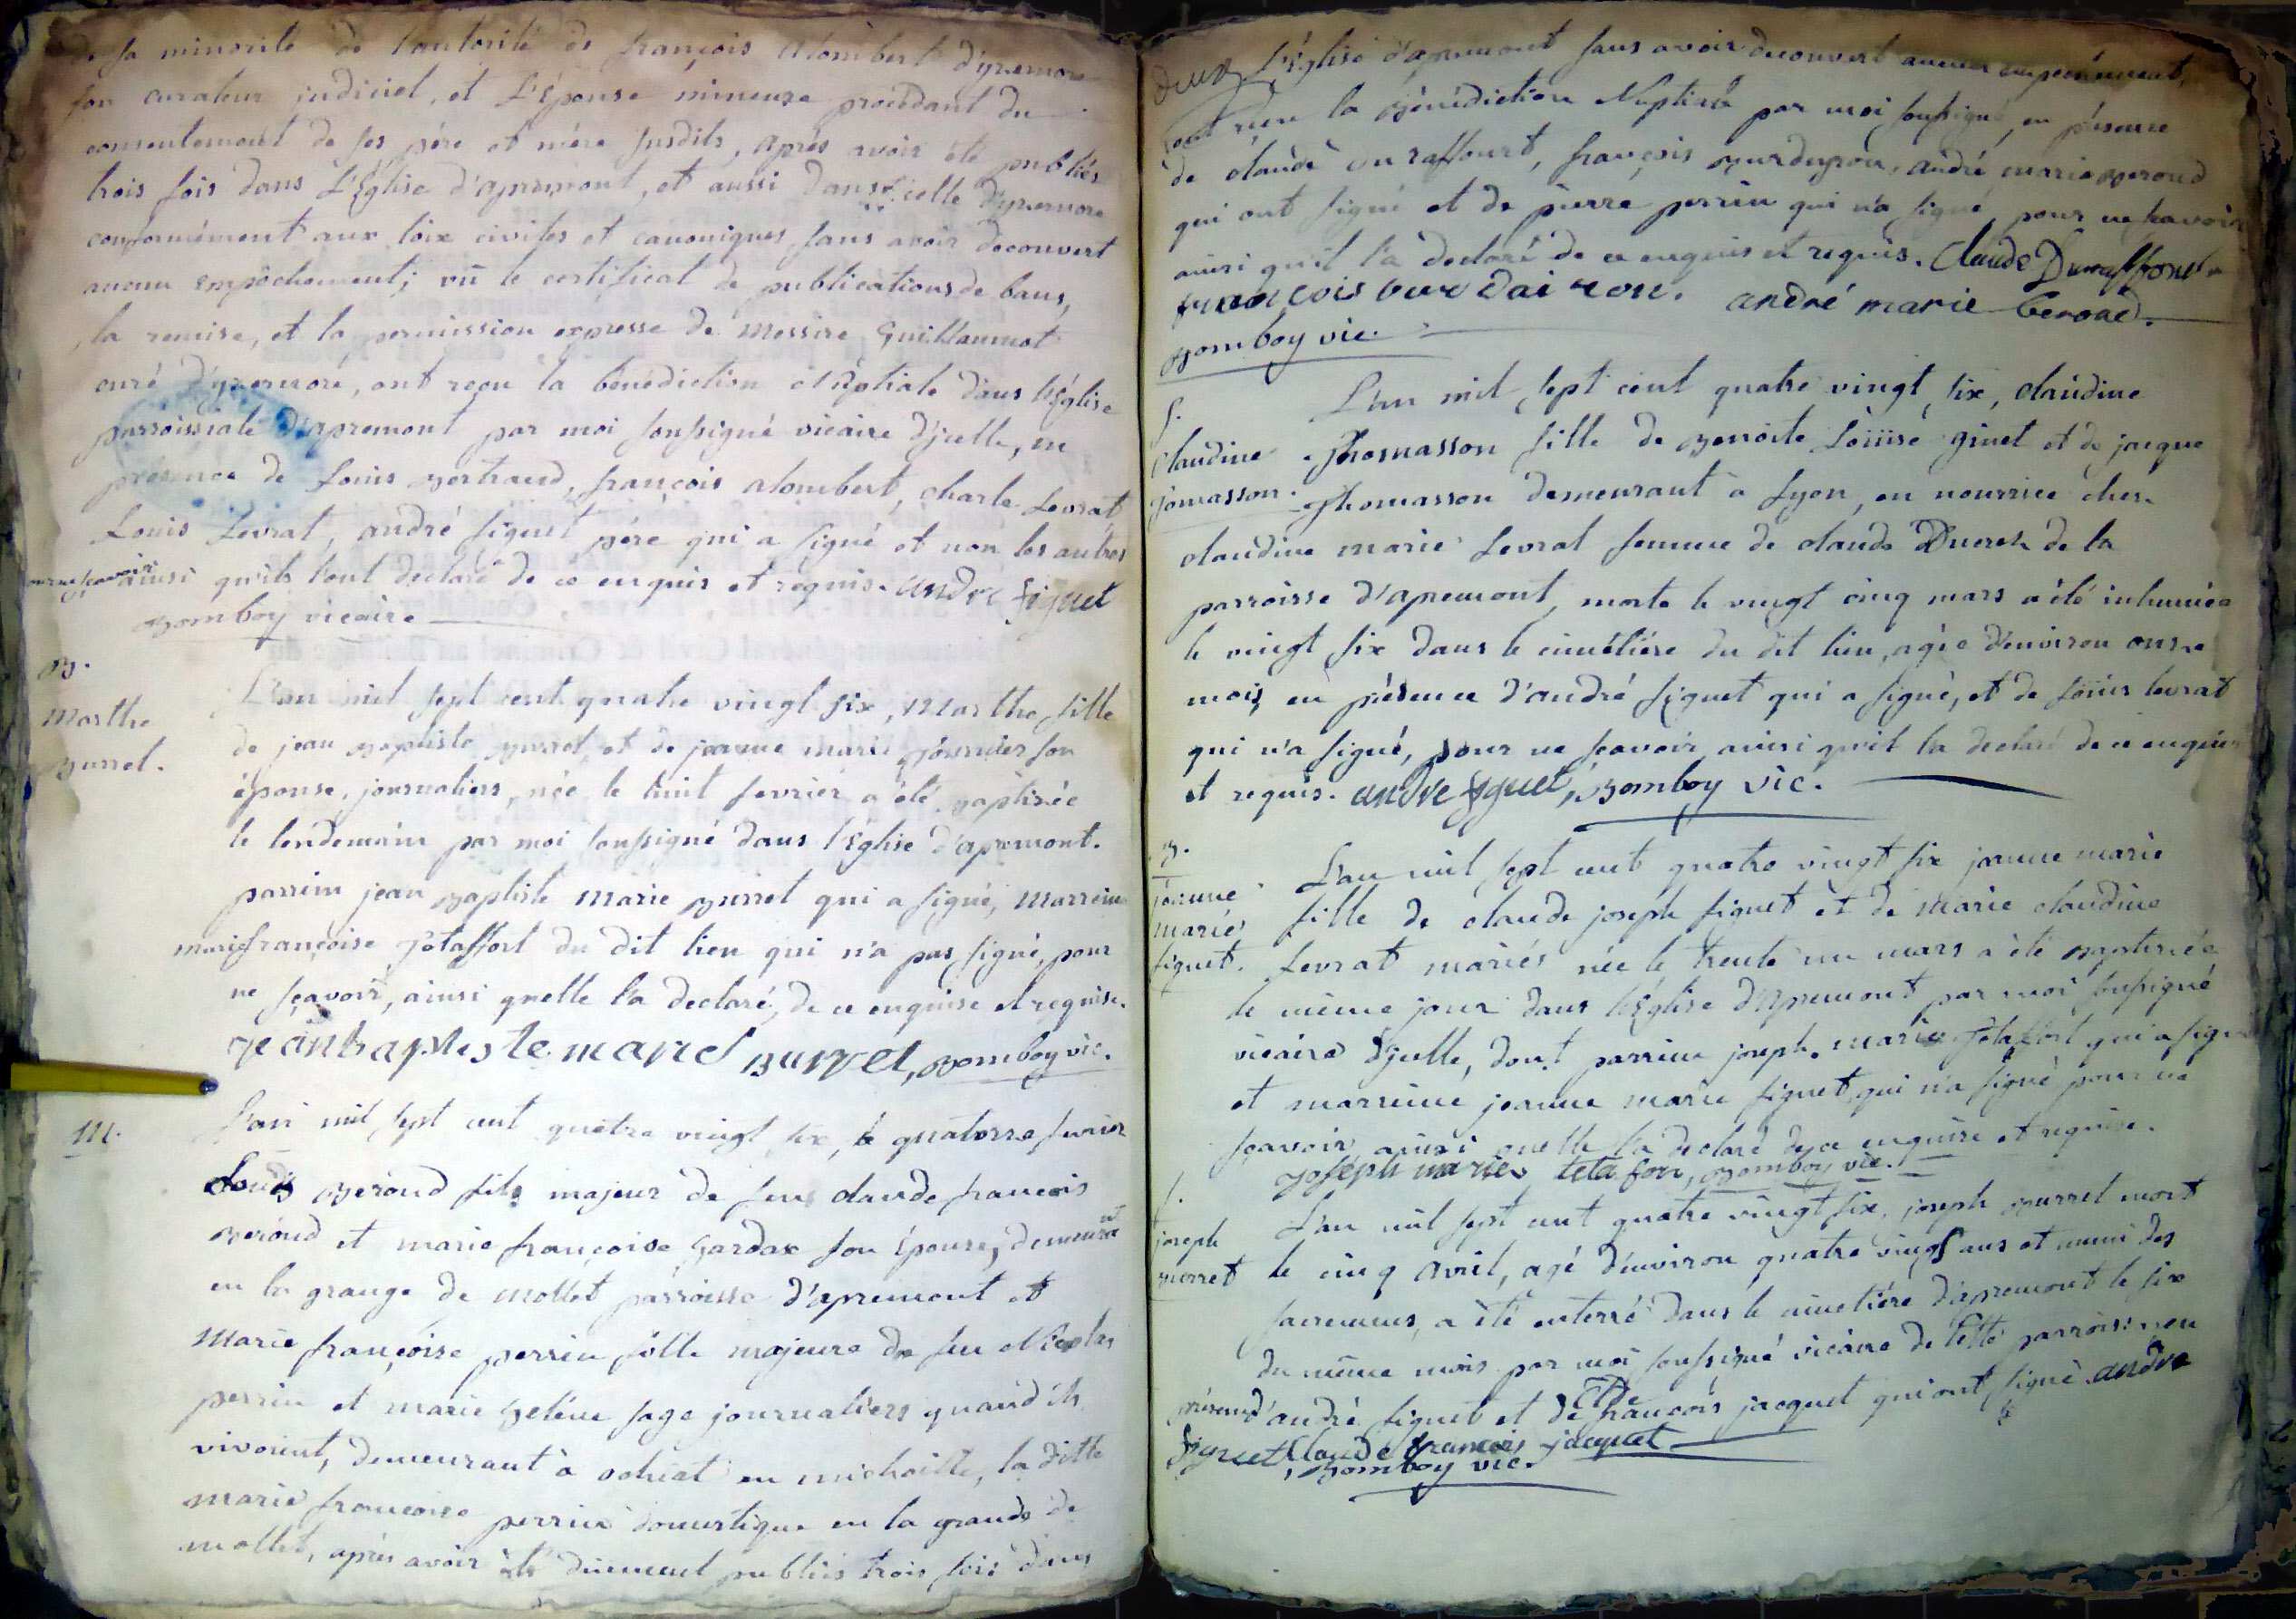 de sa minorité de l'autorité de françois alombert d'yzernore
son curateur judiciel, et L'Épouse mineure procédant du
consentement de ses père et mère susdits, après avoir été publiés
trois fois dans L'Église d'apremont, et aussi dans celle d'yzernore
conformément aux loix civiles et canoniques sans avoir decouvert
aucun empêchement; vû le certificat de publications de bans,
la remise, et la permission expresse de Messire Guillaumot
curé d'yzernore, ont reçu la bénédiction Nuptiale dans l'Église
parroissiale d'apremont par moi soussigné vicaire d'jcelle, en
présence de Louis Bertrand, françois alombert, charle Levrat,
Louis Levrat, andré figuet père qui a signé et non les autres
pour ne sçavoir ainsi qu'ils l'ont declaré de ce enquis et requis. andre figuet
Bomboy vicaire
B.
Marthe
Burret.
L'an mil sept cent quatre vingt six, Marthe fille
de jean Baptiste Burret et de jeanne marie fournier son
épouse, journaliers, née le huit fevrier a été Baptisée
le lendemain par moi soussigné dans l'Église d'apremont.
parrein jean Baptiste Marie Burret qui a signé, Marreine
marie françoise Tétaffort du dit lieu qui n'a pas signé, pour
ne sçavoir, ainsi quelle l'a declaré, de ce enquise et requise.
jeanbaptiste marie Burret, Bomboy vic.
M.
L'an mil sept cent quatre vingt six, le quatorze fevrier
Louis Beroud fils majeur de feu claude francois
Beroud et marie françoise Gardax son Épouse, demeurant
en la grange de Mollet parroisse d'apremont et
Marie françoise perrin fille majeure de feu Nicolas
perrin et marie heléne sage journaliers quand ils
vivoient, demeurant à ochiat en michaille, la ditte
marie françoise perrin domestique en la grande de
mollet, après avoir été dûement publiés trois fois dans
deux L'Église d'apremont sans avoir decouvert aucun empechement,
ont reçu la Bénédiction Nuptiale par moi soussigné, en présence
de claude Duraffourt, françois Burdeyron, andré marie Beroud
qui ont signé et de pierre perrin qui n'a signé pour ne sçavoir
ainsi qu'il l'a declaré de ce enquis et requis. Claude Duraffourt
francois bur dai ron. andré marie Beroud.
Bomboy vic.
S.
Claudine
Jomasson.
L'an mil sept cent quatre vingt six, claudine
Thomasson fille de Benoite Loüise ginet et de jacque
Thomasson demeurant à Lyon, en nourrice chez
claudine marie Levrat femme de claude Ducret de la
parroisse d'apremont, morte le vingt cinq mars a été inhumée
le vingt six dans le cimétière du dit lieu, agée d'environ onze
mois, en présence d'andré figuet qui a signé, et de Loüis levrat
qui n'a signé, pour ne sçavoir ainsi qu'il l'a declaré de ce enquis
et requis. andre figuet, Bomboy vic.
B.
jeanne
marie
figuet.
L'an mil sept cent quatre vingt six jeanne marie
fille de claude joseph figuet et de Marie claudine
Levrat mariés née le trente un mars a été Baptisée
le même jour dans l'Église d'apremont par moi soussigné
vicaire d'jcelle, dont parrein joseph marie Tétafort qui a signé
et marreine jeanne marie figuet qui n'a signé pour ne
sçavoir ainsi quelle l'a declaré de ce enquise et requise.
joseph marie teta fort, Bomboy vic.
S.
joseph
Burret
L'an mil sept cent quatre vingt six, joseph Burret mort
le cinq avril, agé d'environ quatre vingt ans et muni des
sacremens, a été enterré dans le cimetière d'apremont le six
du même mois par moi soussigné vicaire de cette parroisse en
présence d'andré figuet et de Cl De francois jacquet qui ont signé. andre
figuet, Claude francois jacquet
Bomboy vic.